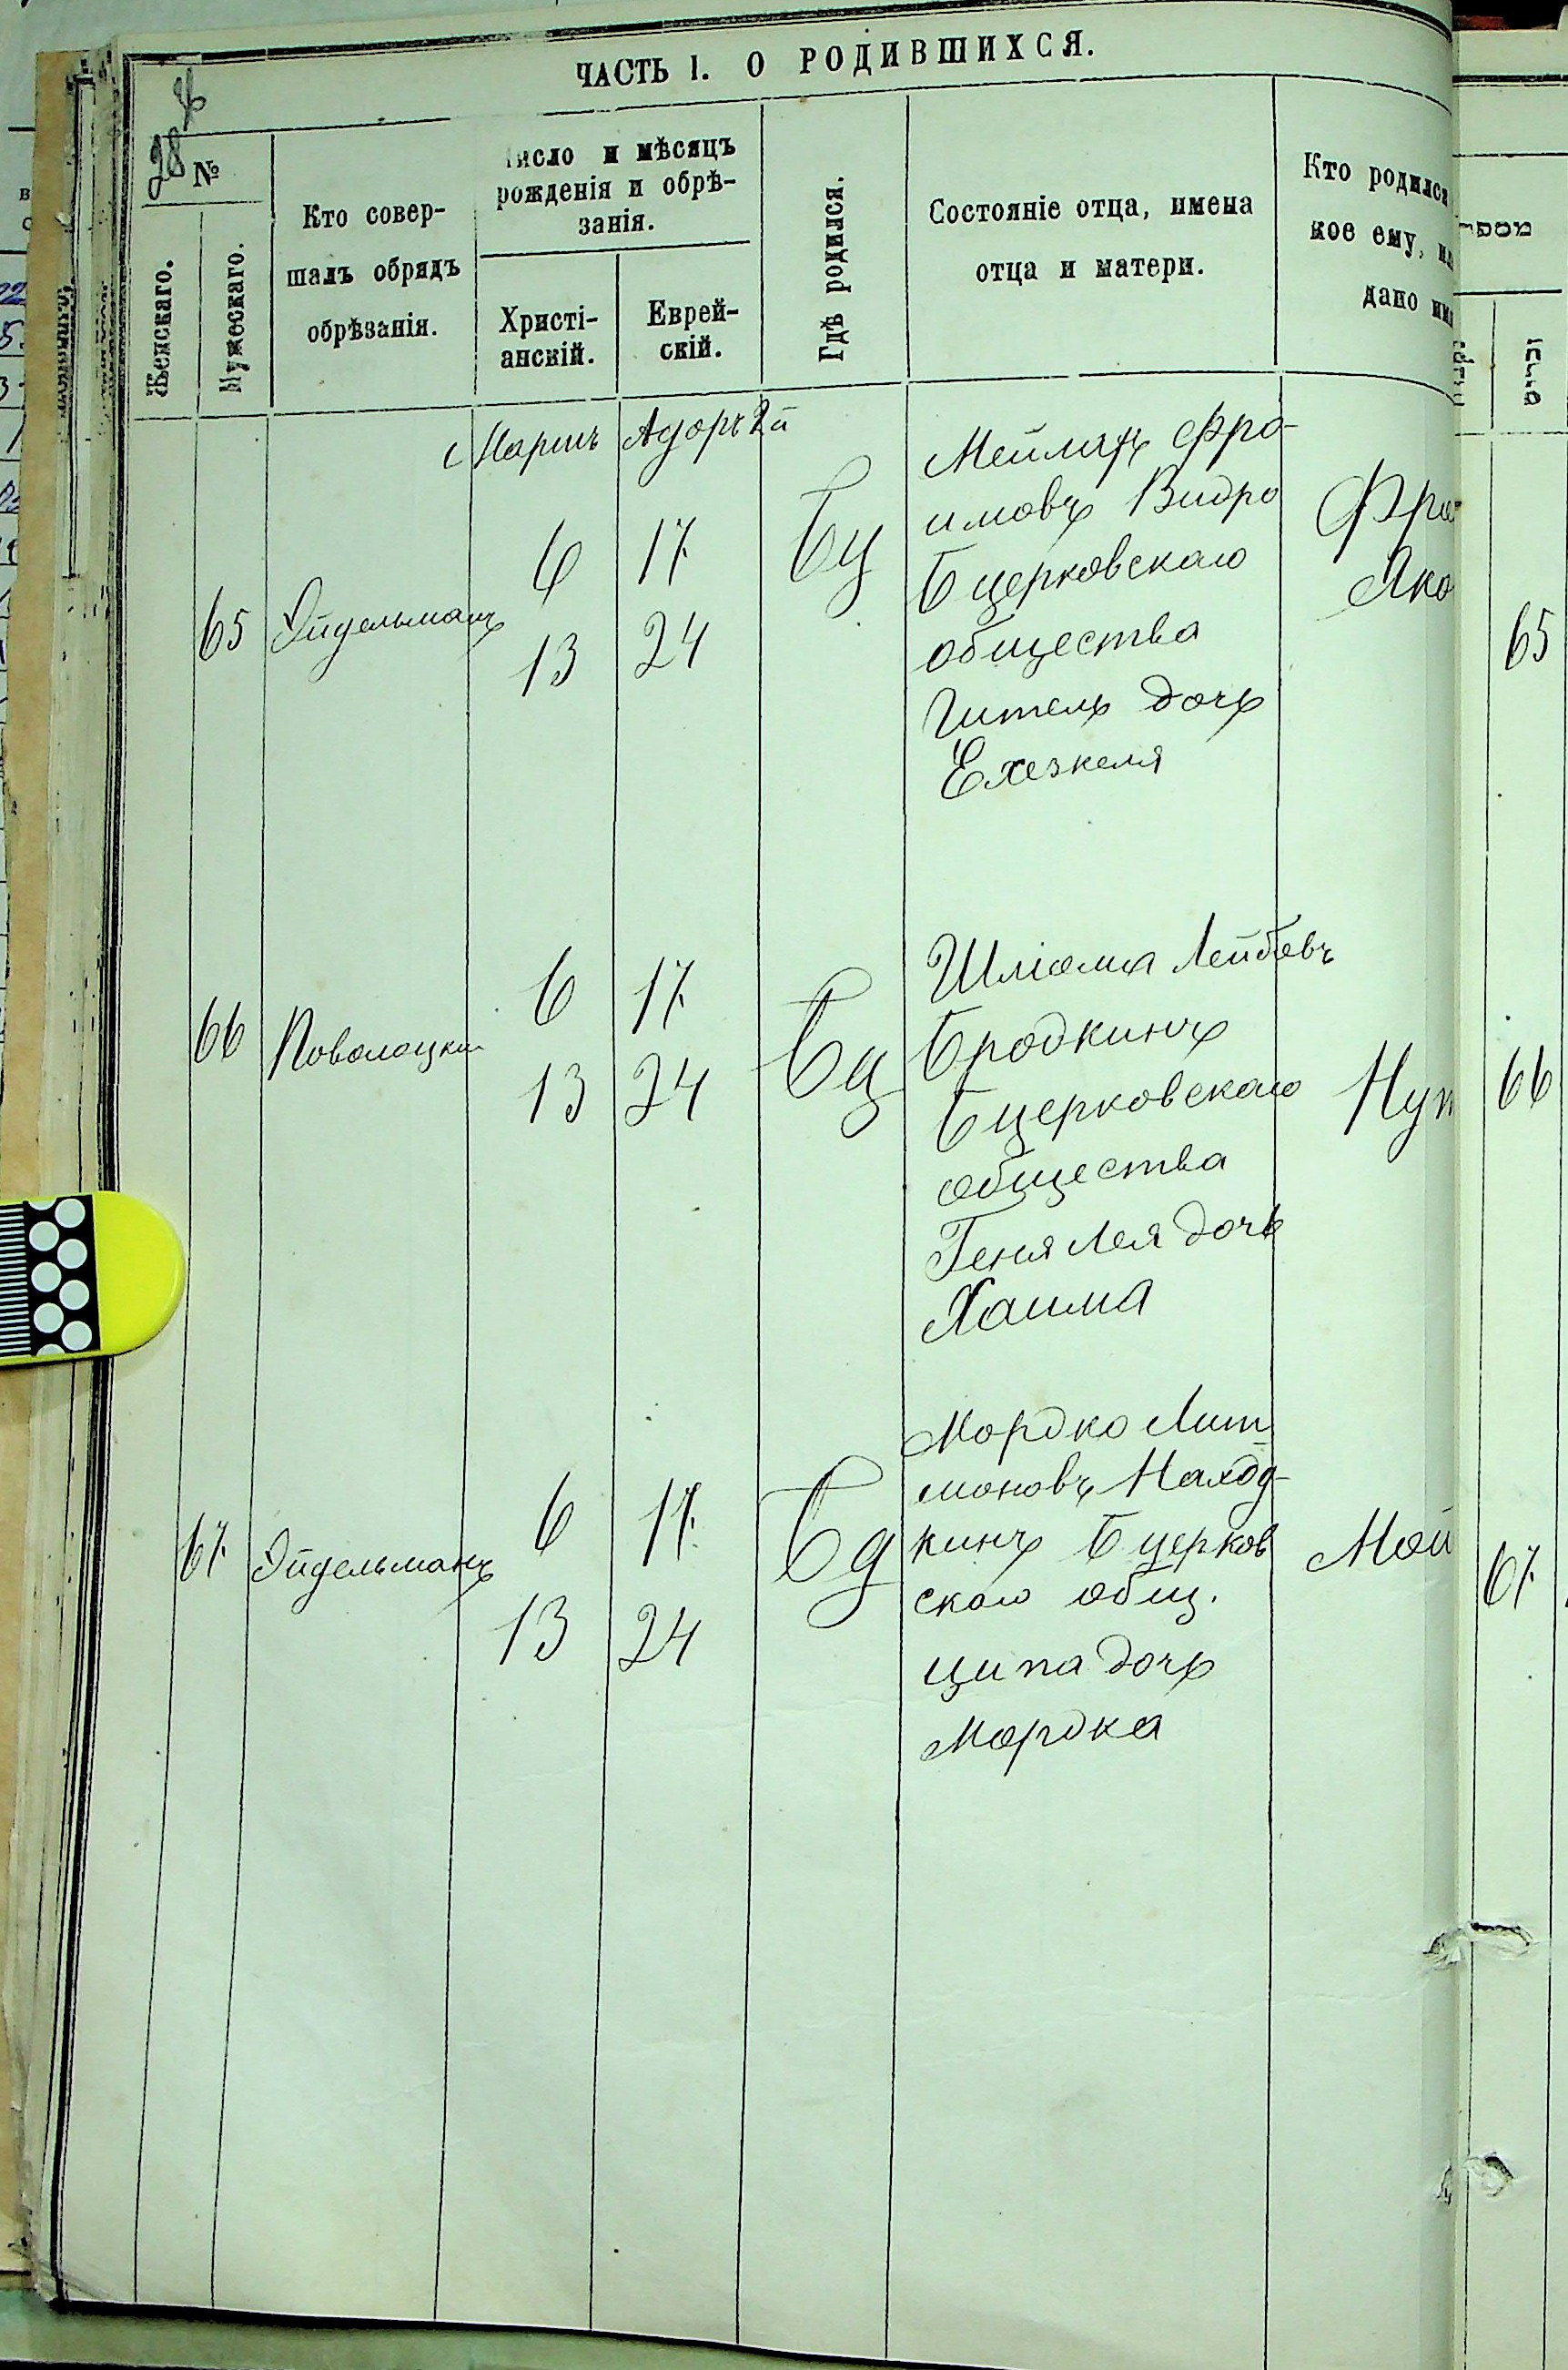 ЧАСТЬ I. О РОДИВШИХСЯ.
28
№
Женскаго.
Мужескаго.
Кто совер-
шалъ обрядъ
обрѣзанія.
исло и мѣсяцъ
рожденія и обрѣ-
занія.
Христі-
анскій.
Еврей-
скій.
Гдѣ родился.
Состояніе отца, имена
отца и матери.
Кто родился
кое ему, и
дано им
מספר
Мартъ Адоръ 2й
65 Эйдельманъ
6 17
13 24
Бц
Мейлахъ Фро-
имовъ Видро
Бцерковскаго
общества
Гитель дочь
Ехезкеля
Фро
Яко
65
66 Поволоцкий
6 17
13 24
Бц
Шлiома Лейбовъ
Бродкинъ
Бцерковскаго
общества
Геня Лея дочь
Хаима
Нут
66
67 Эйдельманъ
6 17
13 24
Бц
Мордко Лит
моновъ Наход-
кинъ Бцерков
скаго общ.
Ципа дочь
Мордка
Мой
67